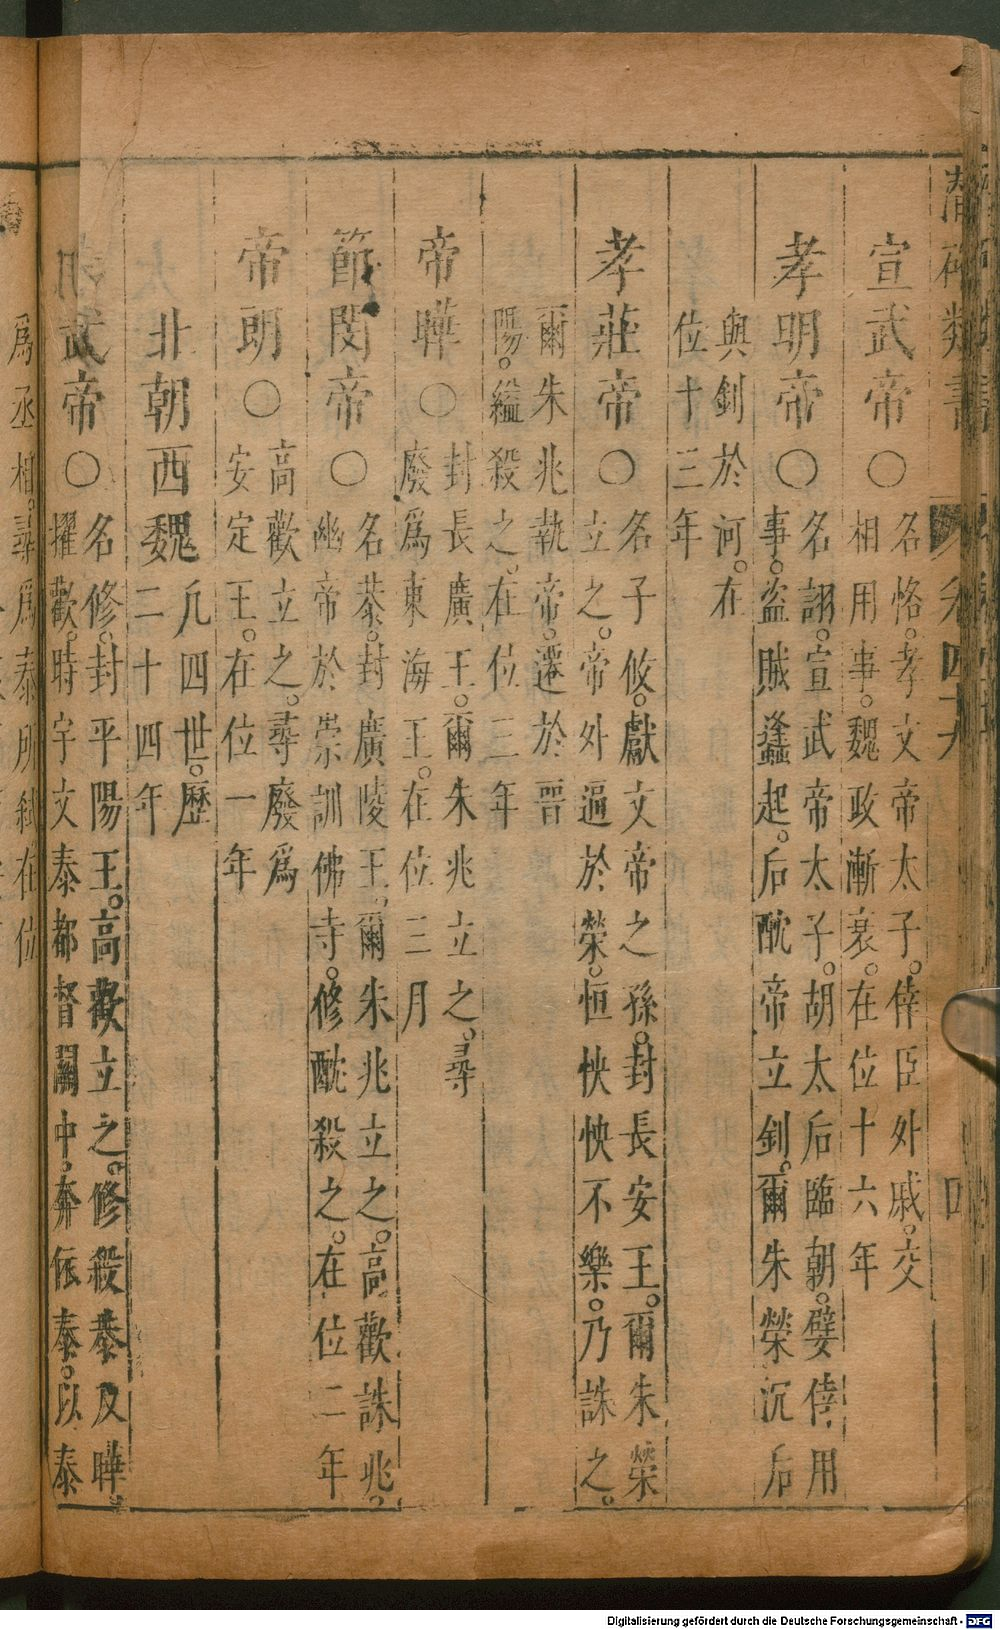 潛確類書 卷四十九 四
宣武帝○名恪。孝文帝太子。倖臣外戚。交
相用事。魏政漸衰。在位十六年
孝明帝○名詡。宣武帝太子。胡太后臨朝。嬖倖用
事。盜賊蠭起。后酖帝立釗。爾朱榮沉后
與釗於河。在
位十三年
孝莊帝○名子攸。獻文帝之孫。封長安王。爾朱榮
立之。帝外逼於榮。恒怏怏不樂。乃誅之。
爾朱兆執帝。遷於晉
陽。縊殺之。在位三年
帝曄○封長廣王。爾朱兆立之。尋
廢爲東海王。在位三月
節閔帝○名恭。封廣陵王。爾朱兆立之。高歡誅兆。
幽帝於崇訓佛寺。修酖殺之。在位二年
帝朗○高歡立之。尋廢爲
安定王。在位一年
北朝西魏凡四世。歷
二十四年
武帝○名修。封平陽王。高歡立之。修殺恭及曄。
擢歡。時宇文泰都督關中。奔依泰。以泰
爲丞相。尋爲泰所弑。在位
Digitalisierung gefördert durch die Deutsche Forschungsgemeinschaft - DFG